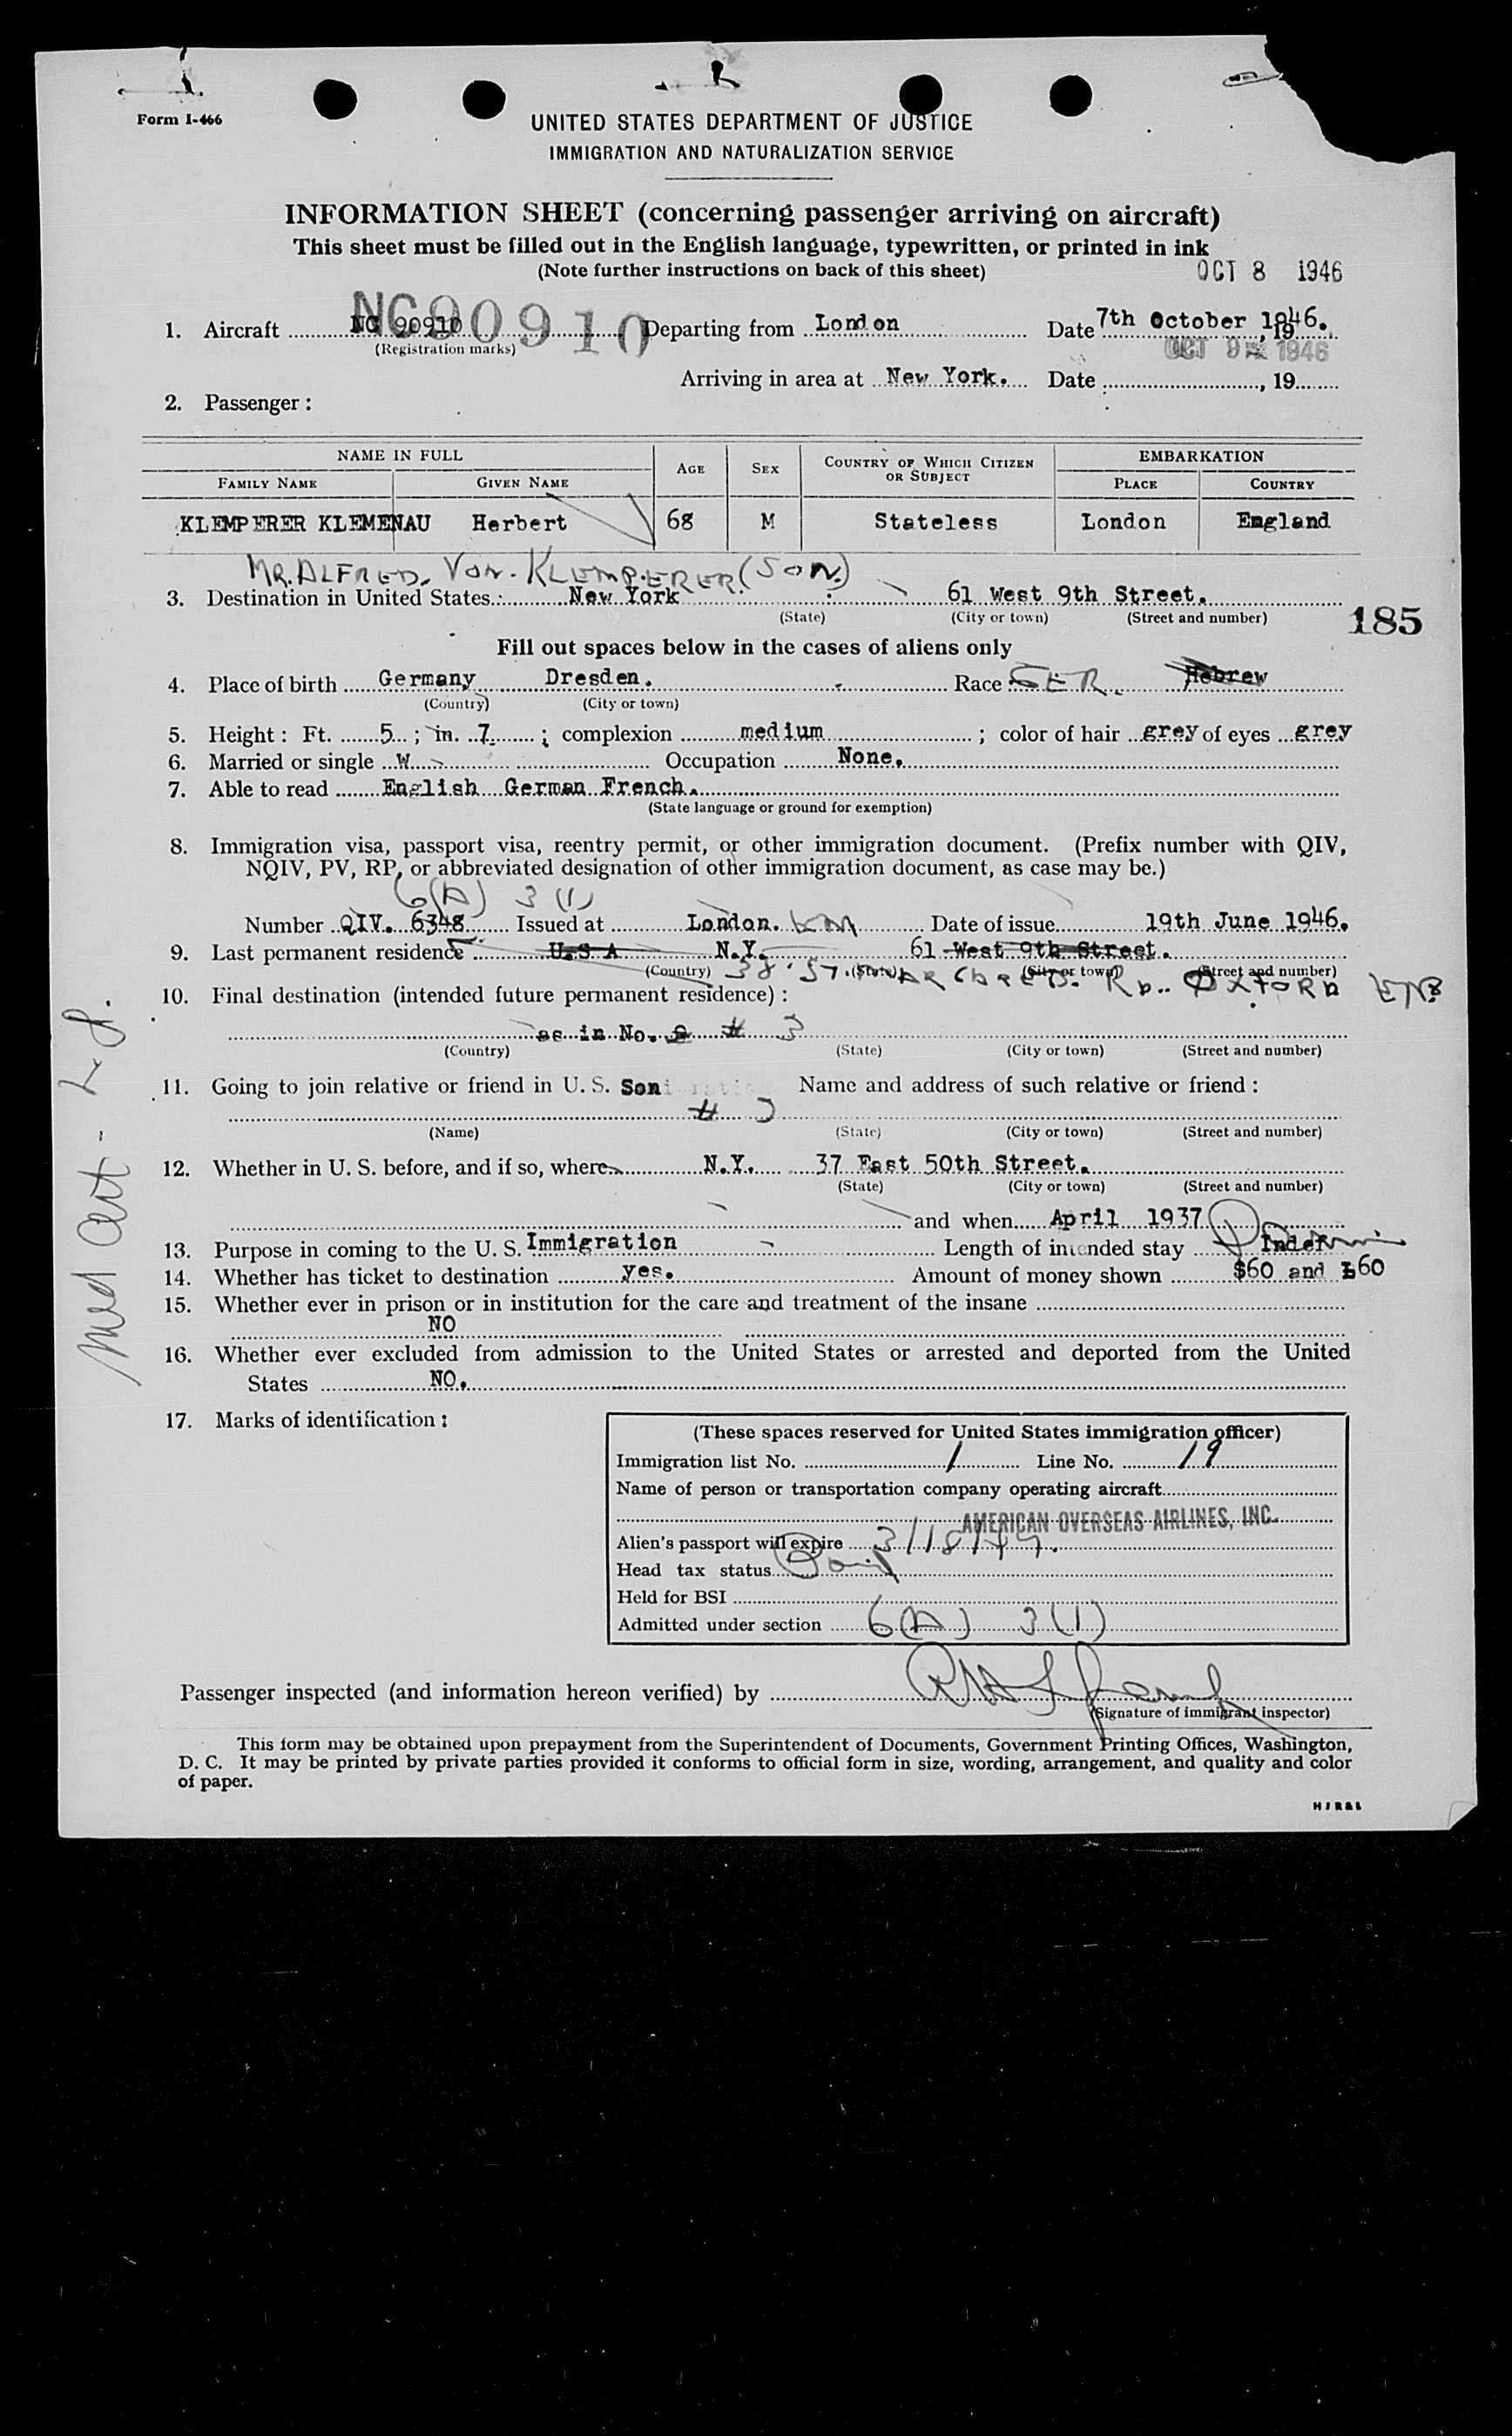 Form I-466
UNITED STATES DEPARTMENT OF JUSTICE
IMMIGRATION AND NATURALIZATION SERVICE
INFORMATION SHEET (concerning passenger arriving on aircraft)
This sheet must be filled out in the English language, typewritten, or printed in ink
(Note further instructions on back of this sheet)
OCT 8 1946
NC90910
1. Aircraft NC 90910 Departing from London Date 7th October 1946.
(Registration marks)
OCT 9 1946
Arriving in area at New York. Date , 19
2. Passenger:
NAME IN FULL AGE SEX COUNTRY OF WHICH CITIZEN OR SUBJECT EMBARKATION
FAMILY NAME GIVEN NAME PLACE COUNTRY
KLEMPERER KLEMENAU Herbert 68 M Stateless London England
MR. ALFRED. VON. KLEMPERER (SON.)
3. Destination in United States: New York 61 West 9th Street.
(State) (City or town) (Street and number)
185
Fill out spaces below in the cases of aliens only
4. Place of birth Germany Dresden. Race GER. Hebrew
(Country) (City or town)
5. Height: Ft. 5 ; in. 7 ; complexion medium ; color of hair grey of eyes grey
6. Married or single W Occupation None.
7. Able to read English German French.
(State language or ground for exemption)
8. Immigration visa, passport visa, reentry permit, or other immigration document. (Prefix number with QIV,
NQIV, PV, RP, or abbreviated designation of other immigration document, as case may be.)
6(A) 3(1)
Number QIV. 6348 Issued at London. Date of issue 19th June 1946.
9. Last permanent residence U.S.A N.Y. 61 West 9th Street.
(Country) (State) (City or town) (Street and number)
38 ST. Rd. OXFORD ENG
10. Final destination (intended future permanent residence):
as in No. 9 # 3
(Country) (State) (City or town) (Street and number)
11. Going to join relative or friend in U. S. Son Name and address of such relative or friend:
# 3
(Name) (State) (City or town) (Street and number)
12. Whether in U. S. before, and if so, where N.Y. 37 East 50th Street.
(State) (City or town) (Street and number)
and when April 1937
13. Purpose in coming to the U. S. Immigration Length of intended stay Indef
14. Whether has ticket to destination yes. Amount of money shown $60 and £60
15. Whether ever in prison or in institution for the care and treatment of the insane
NO
16. Whether ever excluded from admission to the United States or arrested and deported from the United
States NO.
17. Marks of identification:
Med Cert - L. 8.
(These spaces reserved for United States immigration officer)
Immigration list No. 1 Line No. 19
Name of person or transportation company operating aircraft
AMERICAN OVERSEAS AIRLINES, INC.
Alien's passport will expire 3/18/47.
Head tax status Paid
Held for BSI
Admitted under section 6(A) 3(1)
Passenger inspected (and information hereon verified) by
(Signature of immigrant inspector)
This form may be obtained upon prepayment from the Superintendent of Documents, Government Printing Offices, Washington,
D. C. It may be printed by private parties provided it conforms to official form in size, wording, arrangement, and quality and color
of paper.